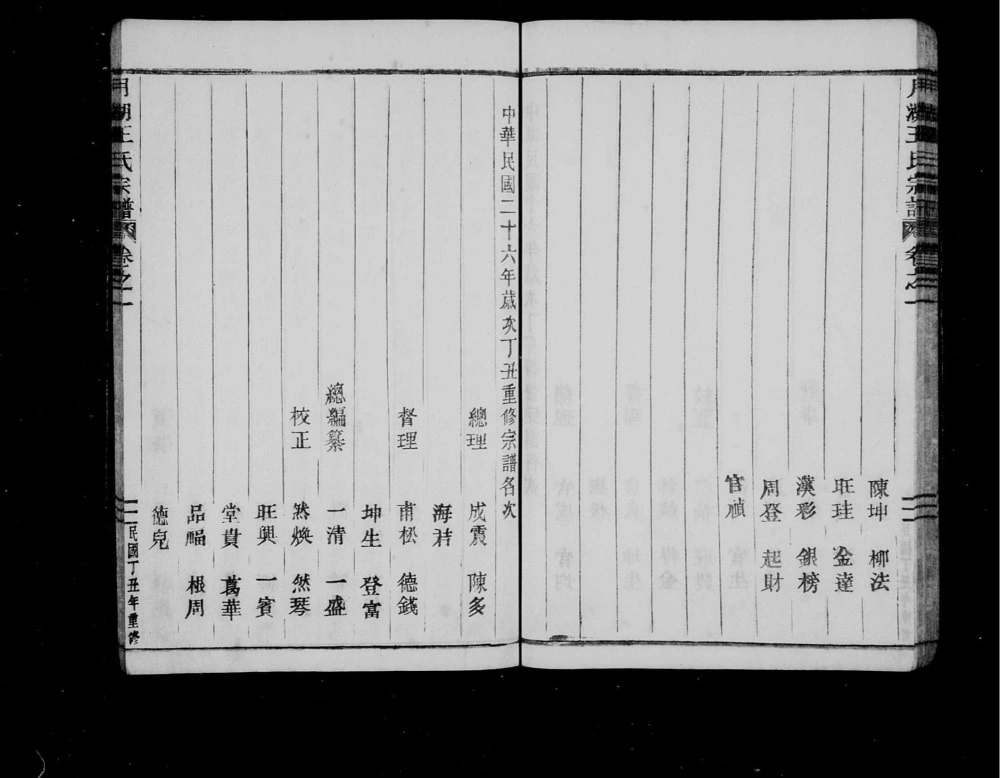 月湖王氏宗譜 卷之一
陳坤 柳法
旺珪 金達
漢彩 銀榜
周登 起財
官禎
中華民國二十六年歲次丁丑重修宗譜各次
總理 成震 陳多
海若
督理 甫松 德錢
坤生 登富
總編纂 一清 一盛
校正 然煥 然琴
旺興 一賓
堂貴 萬華
品福 根周
德兒
月湖王氏宗譜 卷之一
二 民國丁丑年重修